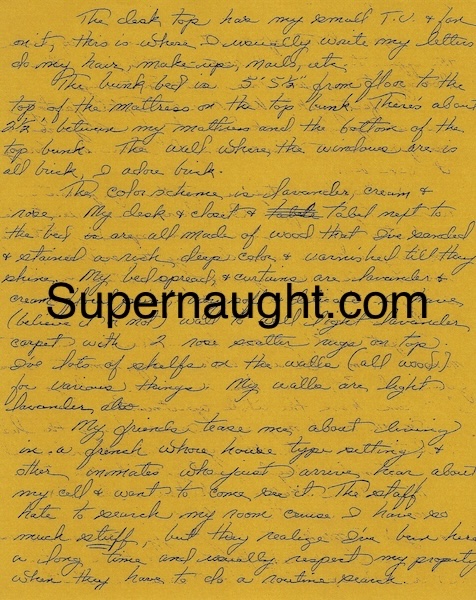 The desk top has my small T.V. & fan
on it, this is where I usually write my letters
do my hair, make-up, nails, etc.
The bunk bed is 5' 5½" from floor to the
top of the mattress on the top bunk. There's about
2½' between my mattress and the bottom of the
top bunk. The wall where the windows are is
all brick, I adore brick.
The color scheme is lavander, cream &
rose. My desk & closet & tabel next to
the bed are all made of wood that I've sanded
& stained a rich, deep color & varnished till they
shine. My bedspread & curtains are lavander &
cream
Supernaught.com
(believe it or not) wall to wall light lavander
carpet with 2 rose scatter rugs on top.
I've lots of shelfs on the walls (all wood)
for various things. My walls are light
lavander, also.
My friends tease me about living
in a french whore house type setting, &
other inmates who just arrive hear about
my cell & want to come see it. The staff
hate to search my room cause I have so
much stuff, but they realize I've been here
a long time and usually respect my property
when they have to do a routine search.